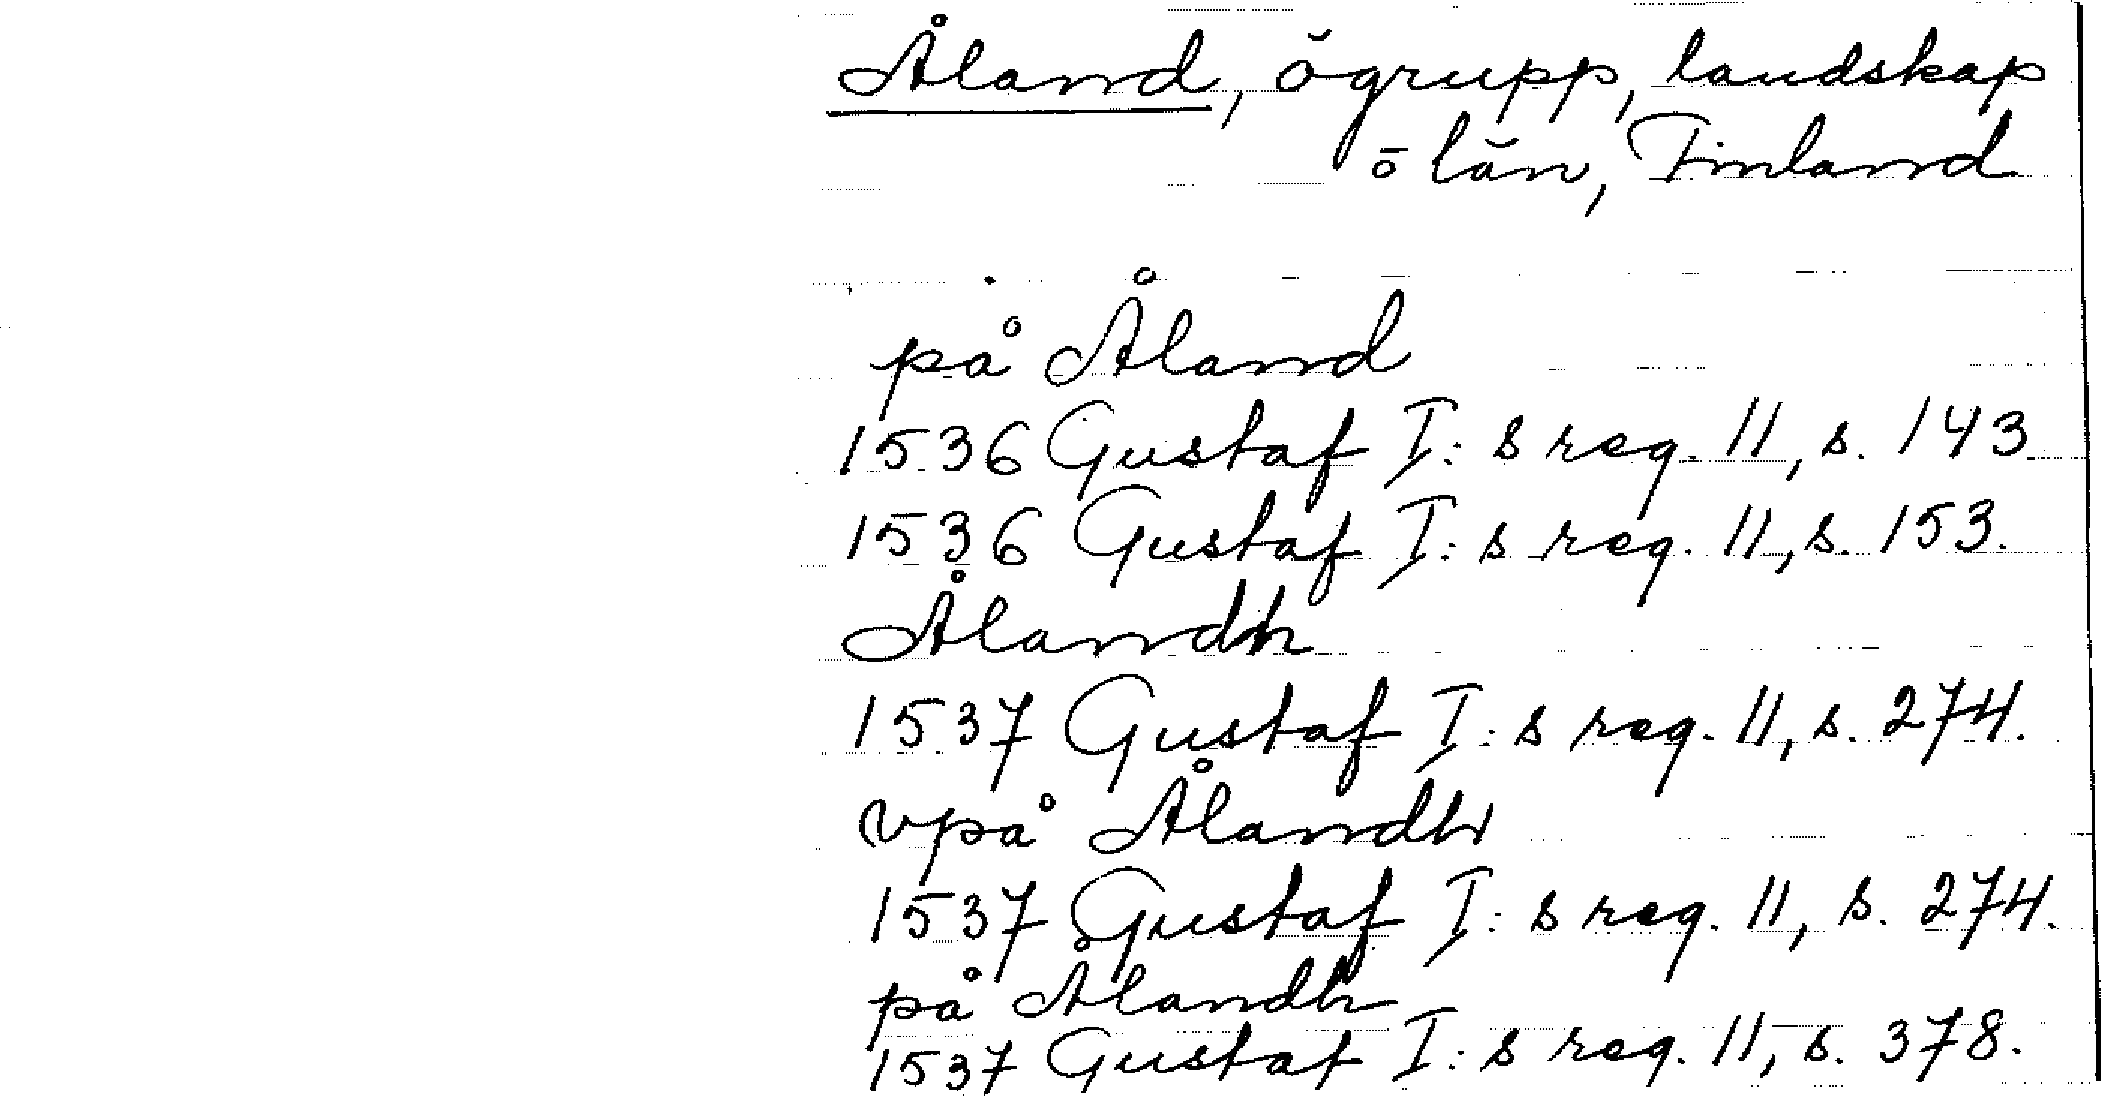 Åland, ögrupp, landskap
o län, Finland
på Åland
1536 Gustaf I:s reg. 11, s. 143
1536 Gustaf I:s reg. 11, s. 153.
Ålandh
1537 Gustaf I:s reg. 11, s. 274.
vpå Ålandh
1537 Gustaf I:s reg. 11, s. 274.
på Ålandh
1537 Gustaf I:s reg. 11, s. 378.